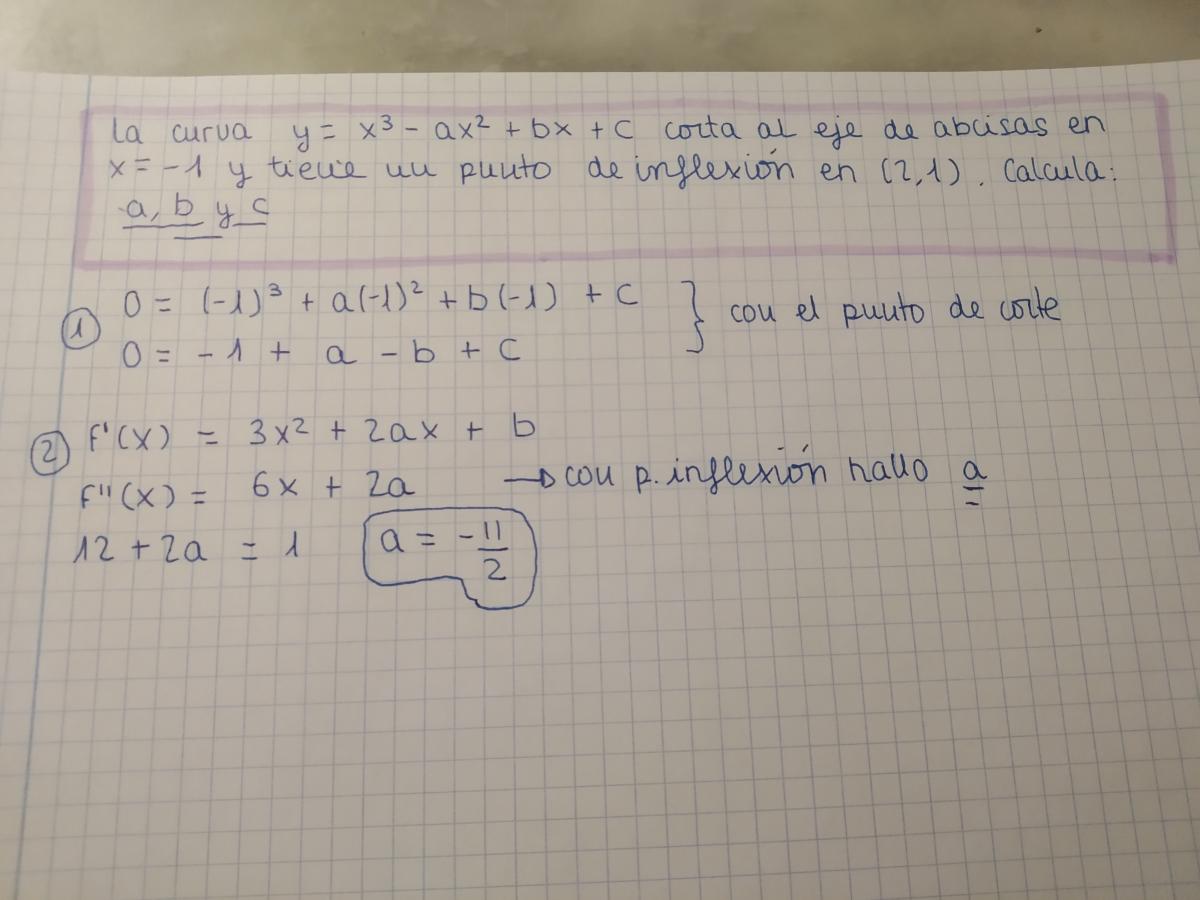 La curva y = x³ - ax² + bx + c corta al eje de abcisas en
x = -1 y tiene un punto de inflexión en (2,1). Calcula:
a, b y c
① 0 = (-1)³ + a(-1)² + b(-1) + c } con el punto de corte
0 = -1 + a - b + c
② f'(x) = 3x² + 2ax + b
f''(x) = 6x + 2a → con p. inflexión hallo a
12 + 2a = 1 a = -11/2